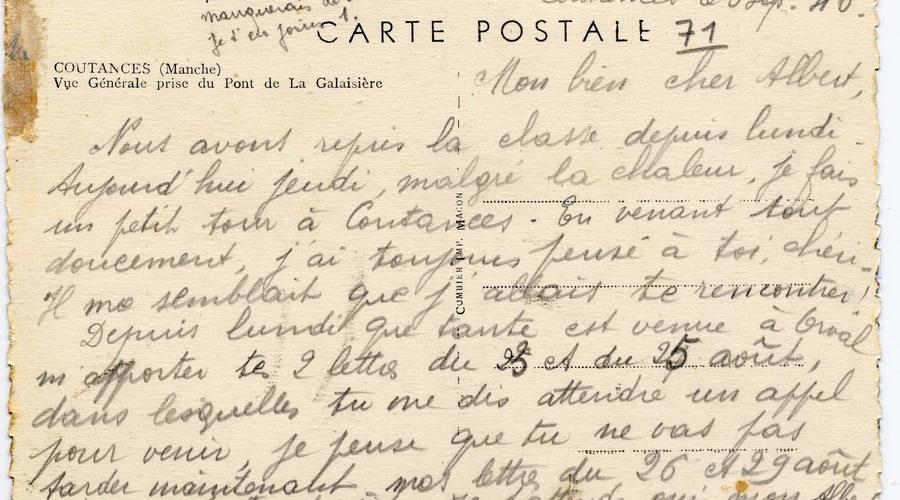 manquerais de
je t'en prius 1.
Coutances 5 Sep. 46.
CARTE POSTALE 71
COUTANCES (Manche)
Vue Générale prise du Pont de La Galaisière
COMBIER IMP. MACON
Mon bien cher Albert,
Nous avons repris la classe depuis lundi
Aujourd'hui jeudi, malgré la chaleur, je fais
un petit tour à Coutances - En venant tout
doucement, j'ai toujours pensé à toi, chéri -
Il me semblait que j'allais te rencontrer !
Depuis lundi que tante est venue à Orval
m'apporter tes 2 lettres du 23 et du 25 août,
dans lesquelles tu me dis attendre un appel
pour venir, je pense que tu ne vas pas
tarder maintenant mes lettres du 26 et 29 août